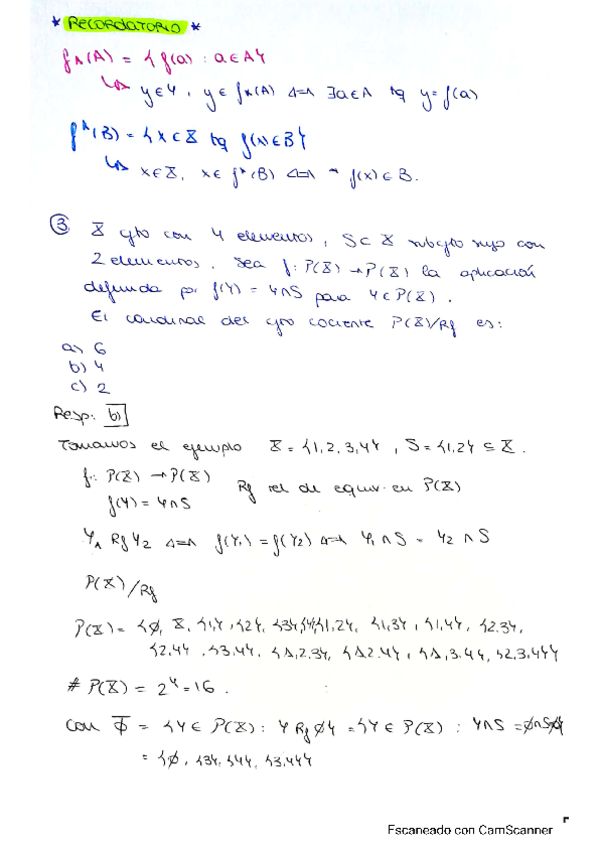 * RECORDATORIO *
f*(A) = {f(a) : a ∈ A}
↳ y ∈ Y, y ∈ f*(A) ⟺ ∃a ∈ A tq y = f(a)
f*(B) = {x ∈ X tq f(x) ∈ B}
↳ x ∈ X, x ∈ f*(B) ⟺ f(x) ∈ B.
③ X cjto con 4 elementos, S ⊂ X subcjto suyo con
2 elementos. Sea f: P(X) → P(X) la aplicación
definida por f(Y) = Y ∩ S para Y ∈ P(X).
El cardinal del cjto cociente P(X)/Rf es:
a) 6
b) 4
c) 2
Resp: b)
Tomamos el ejemplo X = {1,2,3,4}, S = {1,2} ⊆ X.
f: P(X) → P(X)
Rf rel de equiv. en P(X)
f(Y) = Y ∩ S
Y₁ Rf Y₂ ⟺ f(Y₁) = f(Y₂) ⟺ Y₁ ∩ S = Y₂ ∩ S
P(X)/Rf
P(X) = {∅, X, {1}, {2}, {3}, {4}, {1,2}, {1,3}, {1,4}, {2,3},
{2,4}, {3,4}, {1,2,3}, {1,2,4}, {1,3,4}, {2,3,4}}
# P(X) = 2⁴ = 16.
con ∅̅ = {Y ∈ P(X) : Y Rf ∅} = {Y ∈ P(X) : Y ∩ S = ∅ ∩ S
= {∅, {3}, {4}, {3,4}}
Escaneado con CamScanner